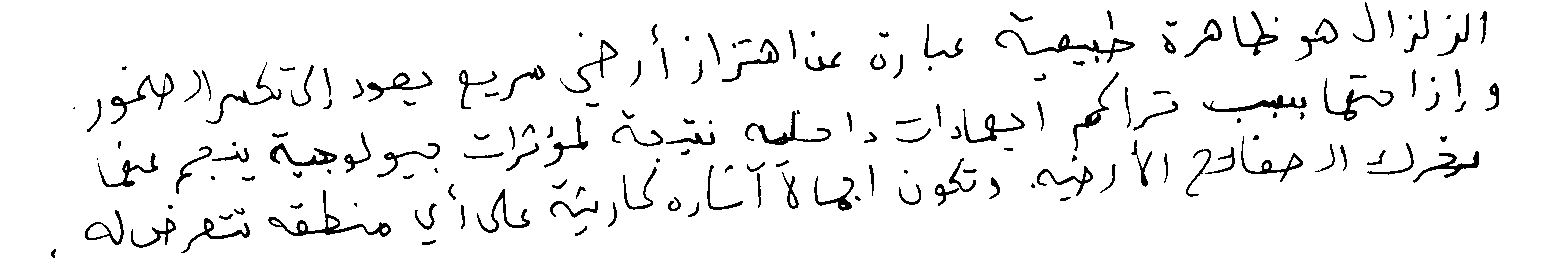 الزلزال هو ظاهرة طبيعية عبارة عن اهتزاز أرضي سريع يعود إلى تكسر الصخور
وإزاحتها بسبب تراكم اجهادات داخليه نتيجة لمؤثرات جيولوجية ينجم عنها
تحرك الصفائح الأرضيه. وتكون اجمالاً آثاره كارثية على أي منطقه تتعرض له .